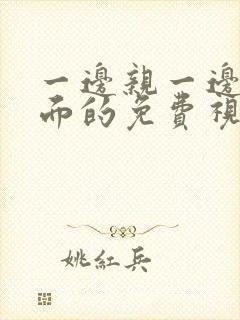 一邊親一邊
而的免費視
姚紅兵